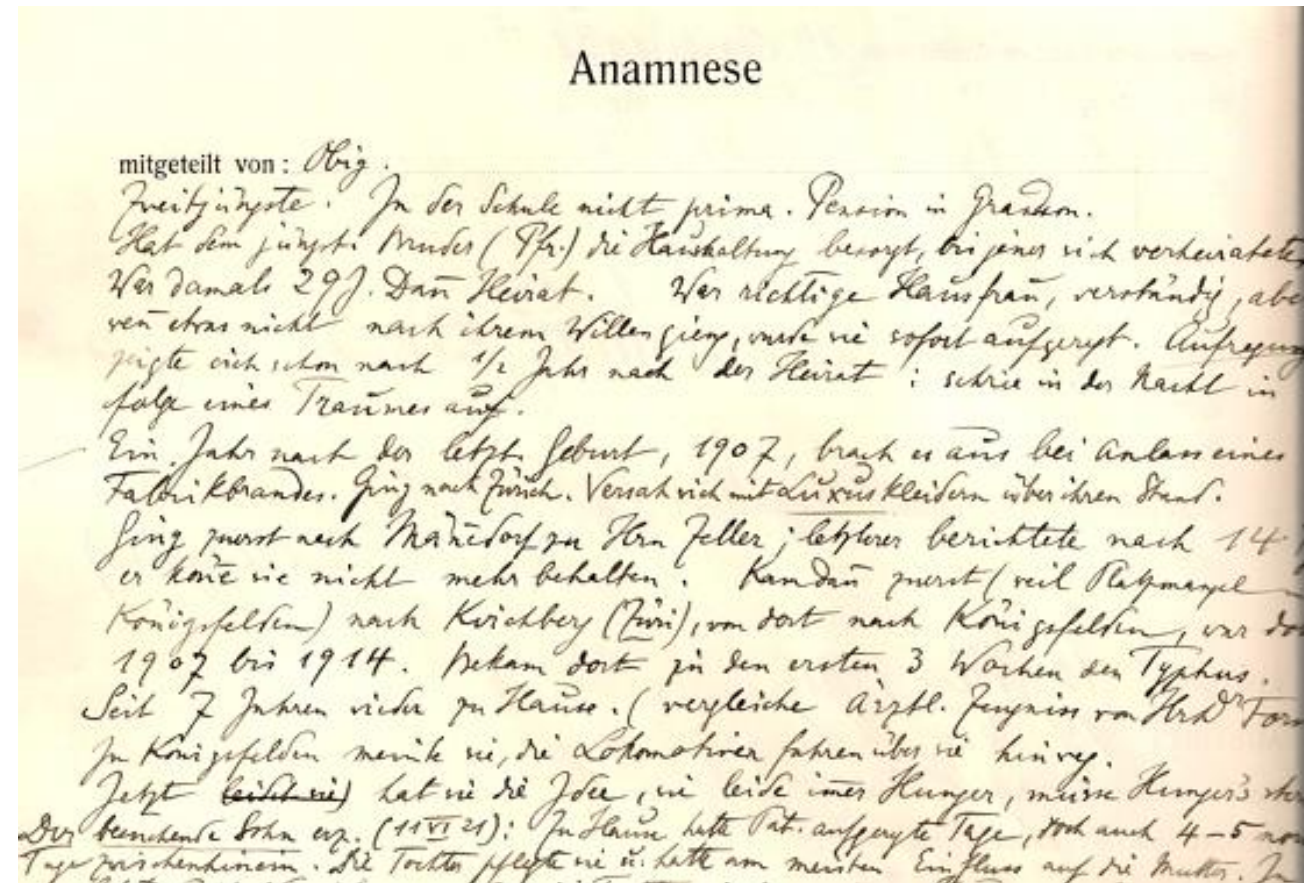 Anamnese
mitgeteilt von: Obig.
Zweitjüngste. In der Schule nicht prima. Pension in Grandson.
Hat dem jüngst. Bruder (Pfr.) die Haushaltung besorgt, bis jener sich verheiratete
War damals 29 J. Dan̄ Heirat. War richtige Hausfrau, verständig, abe
wen̄ etwas nicht nach ihrem Willen gieng, wurde sie sofort aufgeregt. Aufregung
zeigte sich schon nach 1/2 Jahr nach der Heirat: schrie in der Nacht in
folge eines Traumes auf.
Ein Jahr nach der letzt. Geburt, 1907, brach es aus bei Anlass eines
Fabrikbrandes. Ging nach Zürich. Versah sich mit Luxuskleidern über ihren Stand.
Ging zuerst nach Män̄edorf zu Hrn Zeller; letzterer berichtete nach 14
er kön̄e sie nicht mehr behalten. Kam dan̄ zuerst (weil Platzmangel
Königsfelden) nach Kirchberg (Züri), von dort nach Königsfelden, war do
1907 bis 1914. Bekam dort in den ersten 3 Wochen den Typhus.
Seit 7 Jahren wieder zu Hause. (vergleiche ärztl. Zeugniss von Hrn Dr
In Königsfelden meinte sie, die Lokomotiven fahren über sie hinweg.
Jetzt leidet sie) hat sie die Idee, sie leide im̄er Hunger, müsse Hungers ster
Der besuchende Sohn erz. (11 VI 21): In Hause hatte Pat. aufgeregte Tage, doch auch 4-5
Tage zwischenhinein. Die Tochter pflegte sie u. hatte am meisten Einfluss auf die Mutter. In